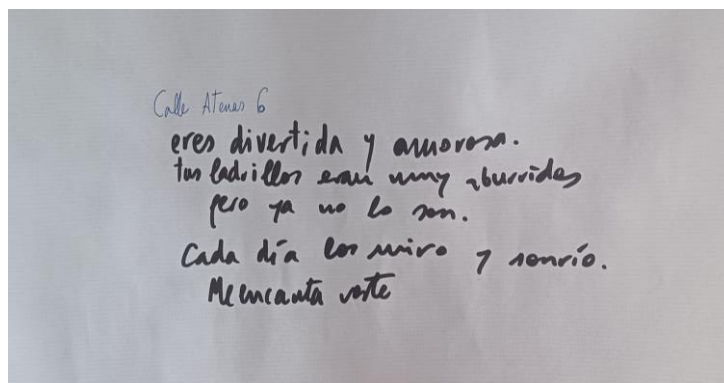 Calle Atenas 6
eres divertida y amorosa.
tus ladrillos eran muy aburridos
pero ya no lo son.
Cada día los miro y sonrío.
Me encanta verte